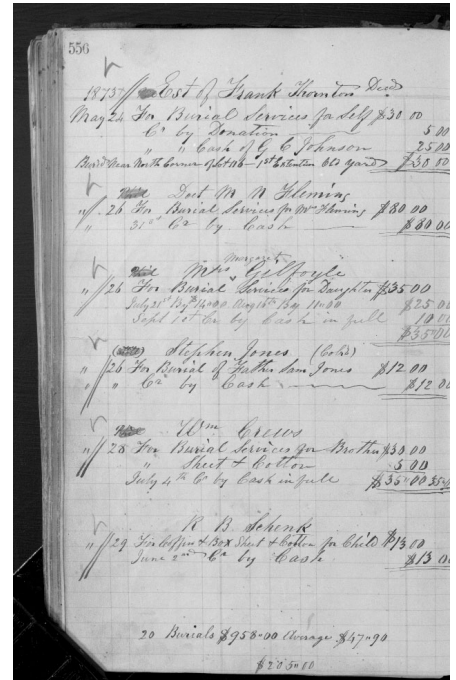 556
1875 Est of Frank Thornton Decd
May 24 For Burial Services for Self $30 00
Cr by Donation 5 00
" " Cash of G C Johnson 25 00
Buried Near North Corner of Lot 176 - 1st Extention Old Yard $30 00
Doct M N Fleming
" 26 For Burial Services for Mrs Fleming $80 00
" 31st Cr by Cash $80 00
Mrs Margaret Gilfoyle
" 26 For Burial Services for Daughter $35 00
July 21st By $14 00 Aug 16th By 11 00 $25 00
Sept 1st Cr by Cash in full 10 00
$35 00
Stephen Jones (Cold)
" 26 For Burial of Father Sam Jones $12 00
" " Cr by Cash $12 00
Wm Crews
" 28 For Burial Services for Brother $30 00
" Sheet & Cotton 5 00
July 4th Cr by Cash in full $35 00 35 00
R. B. Schenk
" 29 For Coffin & Box Sheet & Cotton for Child $13 00
June 2nd Cr by Cash $13 00
20 Burials $958 00 Average $47 90
$205 00